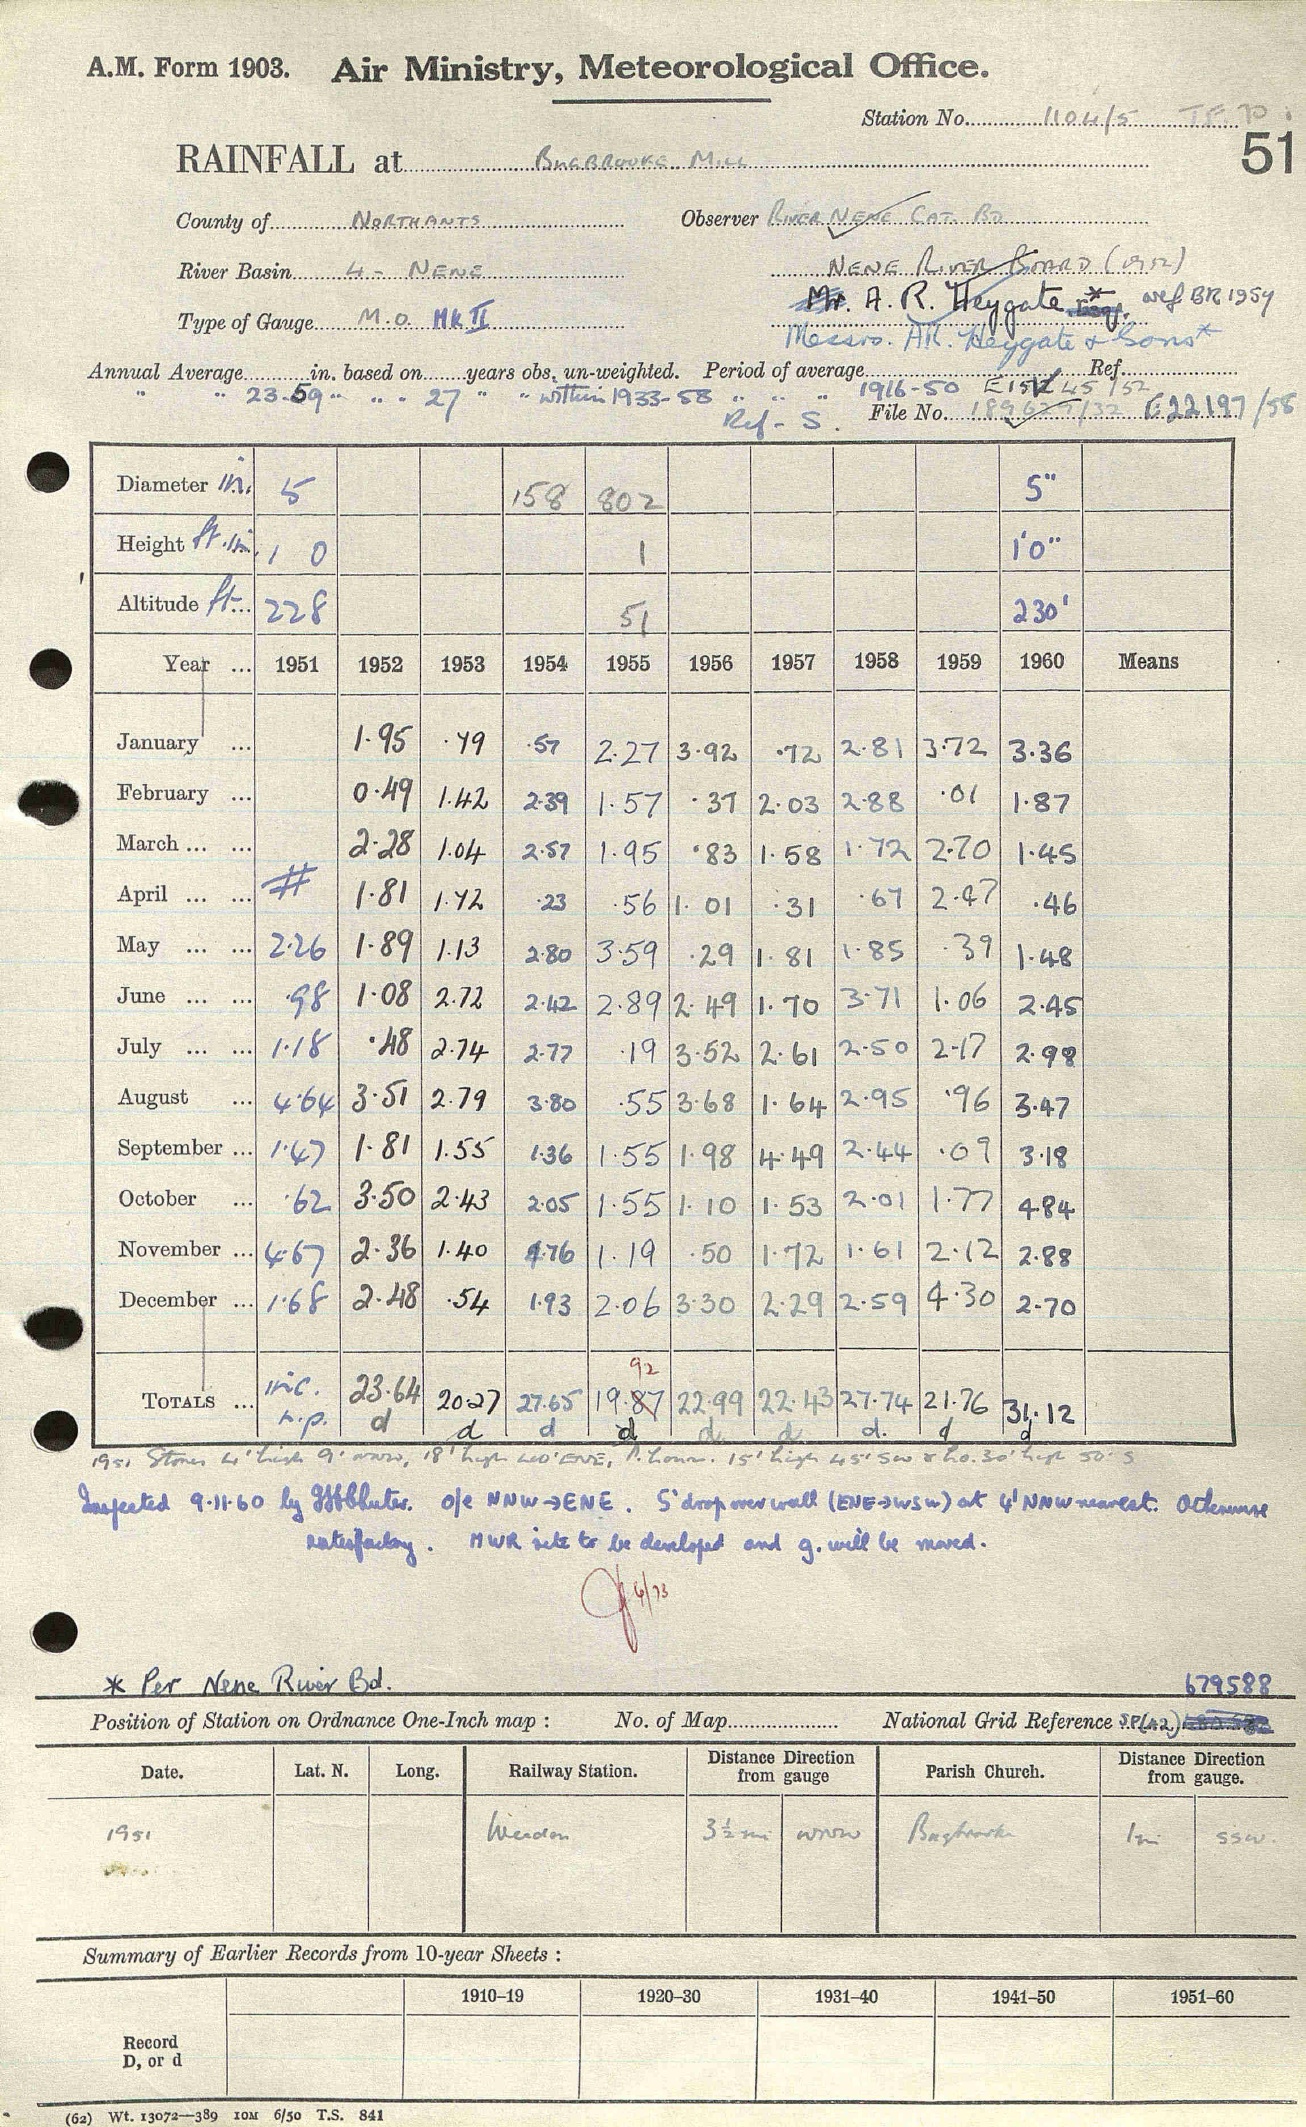 A.M. Form 1903. Air Ministry, Meteorological Office.
Station No. 1104/5
51
RAINFALL at BUGBROOKE MILL
County of NORTHANTS Observer RIVER NENE CAT. BD
River Basin 4 - NENE NENE RIVER BOARD (1952)
Mr. A. R. Heygate Esq. * wef BR 1959
Type of Gauge M.O. MK II
Messrs. AR. Heygate & Sons *
Annual Average in. based on years obs. un-weighted. Period of average Ref.
" " 23.59 " " " 27 " " within 1933-58 " " " 1916-50 45/52
Ref - S. File No. E.22197/58
Diameter in. 5 158 802 5"
Height ft. in. 1 0 1 1'0"
Altitude ft. 228 51 230'
Year ... 1951 1952 1953 1954 1955 1956 1957 1958 1959 1960 Means
January ... 1.95 .79 .57 2.27 3.92 .72 2.81 3.72 3.36
February ... 0.49 1.42 2.39 1.57 .37 2.03 2.88 .01 1.87
March ... ... 2.28 1.04 2.57 1.95 .83 1.58 1.72 2.70 1.45
April ... ... # 1.81 1.72 .23 .56 1.01 .31 .67 2.47 .46
May ... ... 2.26 1.89 1.13 2.80 3.59 .29 1.81 1.85 .39 1.48
June ... ... .98 1.08 2.72 2.42 2.89 2.49 1.70 3.71 1.06 2.45
July ... ... 1.18 .48 2.74 2.77 .19 3.52 2.61 2.50 2.17 2.98
August ... 4.64 3.51 2.79 3.80 .55 3.68 1.64 2.95 .96 3.47
September ... 1.47 1.81 1.55 1.36 1.55 1.98 4.49 2.44 .09 3.18
October ... .62 3.50 2.43 2.05 1.55 1.10 1.53 2.01 1.77 4.84
November ... 4.67 2.36 1.40 4.76 1.19 .50 1.72 1.61 2.12 2.88
December ... 1.68 2.48 .54 1.93 2.06 3.30 2.29 2.59 4.30 2.70
92
TOTALS ... inc. 23.64 20.27 27.65 19.87 22.99 22.43 27.74 21.76 31.12
n.p. d d d d d d d. d d
1951 Stones 4' high 9' WNW, 18' high 40' ENE, P. house 15' high 45' SW & ho. 30' high 50' S
Inspected 9.11.60 by o/e NNW → ENE. 5' drop over wall (ENE → WSW) at 4' NNW nearest. Otherwise
satisfactory. MWR site to be developed and g. will be moved.
6/73
* Per Nene River Bd. 679588
Position of Station on Ordnance One-Inch map : No. of Map National Grid Reference SP(42)
Date. Lat. N. Long. Railway Station. Distance Direction from gauge Parish Church. Distance Direction from gauge.
1951 Weedon 3½ mi WNW Bugbrooke 1 mi SSW.
Summary of Earlier Records from 10-year Sheets :
1910–19 1920–30 1931–40 1941–50 1951–60
Record
D, or d
(62) Wt. 13072—389 10M 6/50 T.S. 841